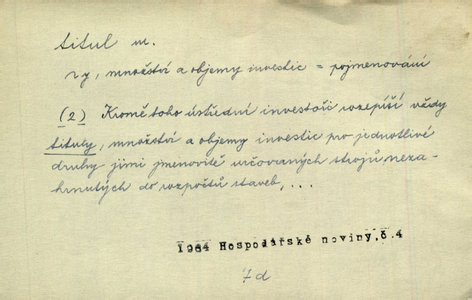 titul m.
ty, množství a objemy investic = pojmenování
(2) Kromě toho ústřední investoři rozepíší vždy
tituly, množství a objemy investic pro jednotlivé
druhy jimi jmenovitě určovaných strojů neza-
hrnutých do rozpočtů staveb, ...
1964 Hospodářské noviny,č.4
7d